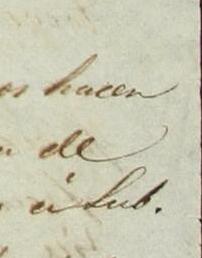 os hacen
de
á Sub.